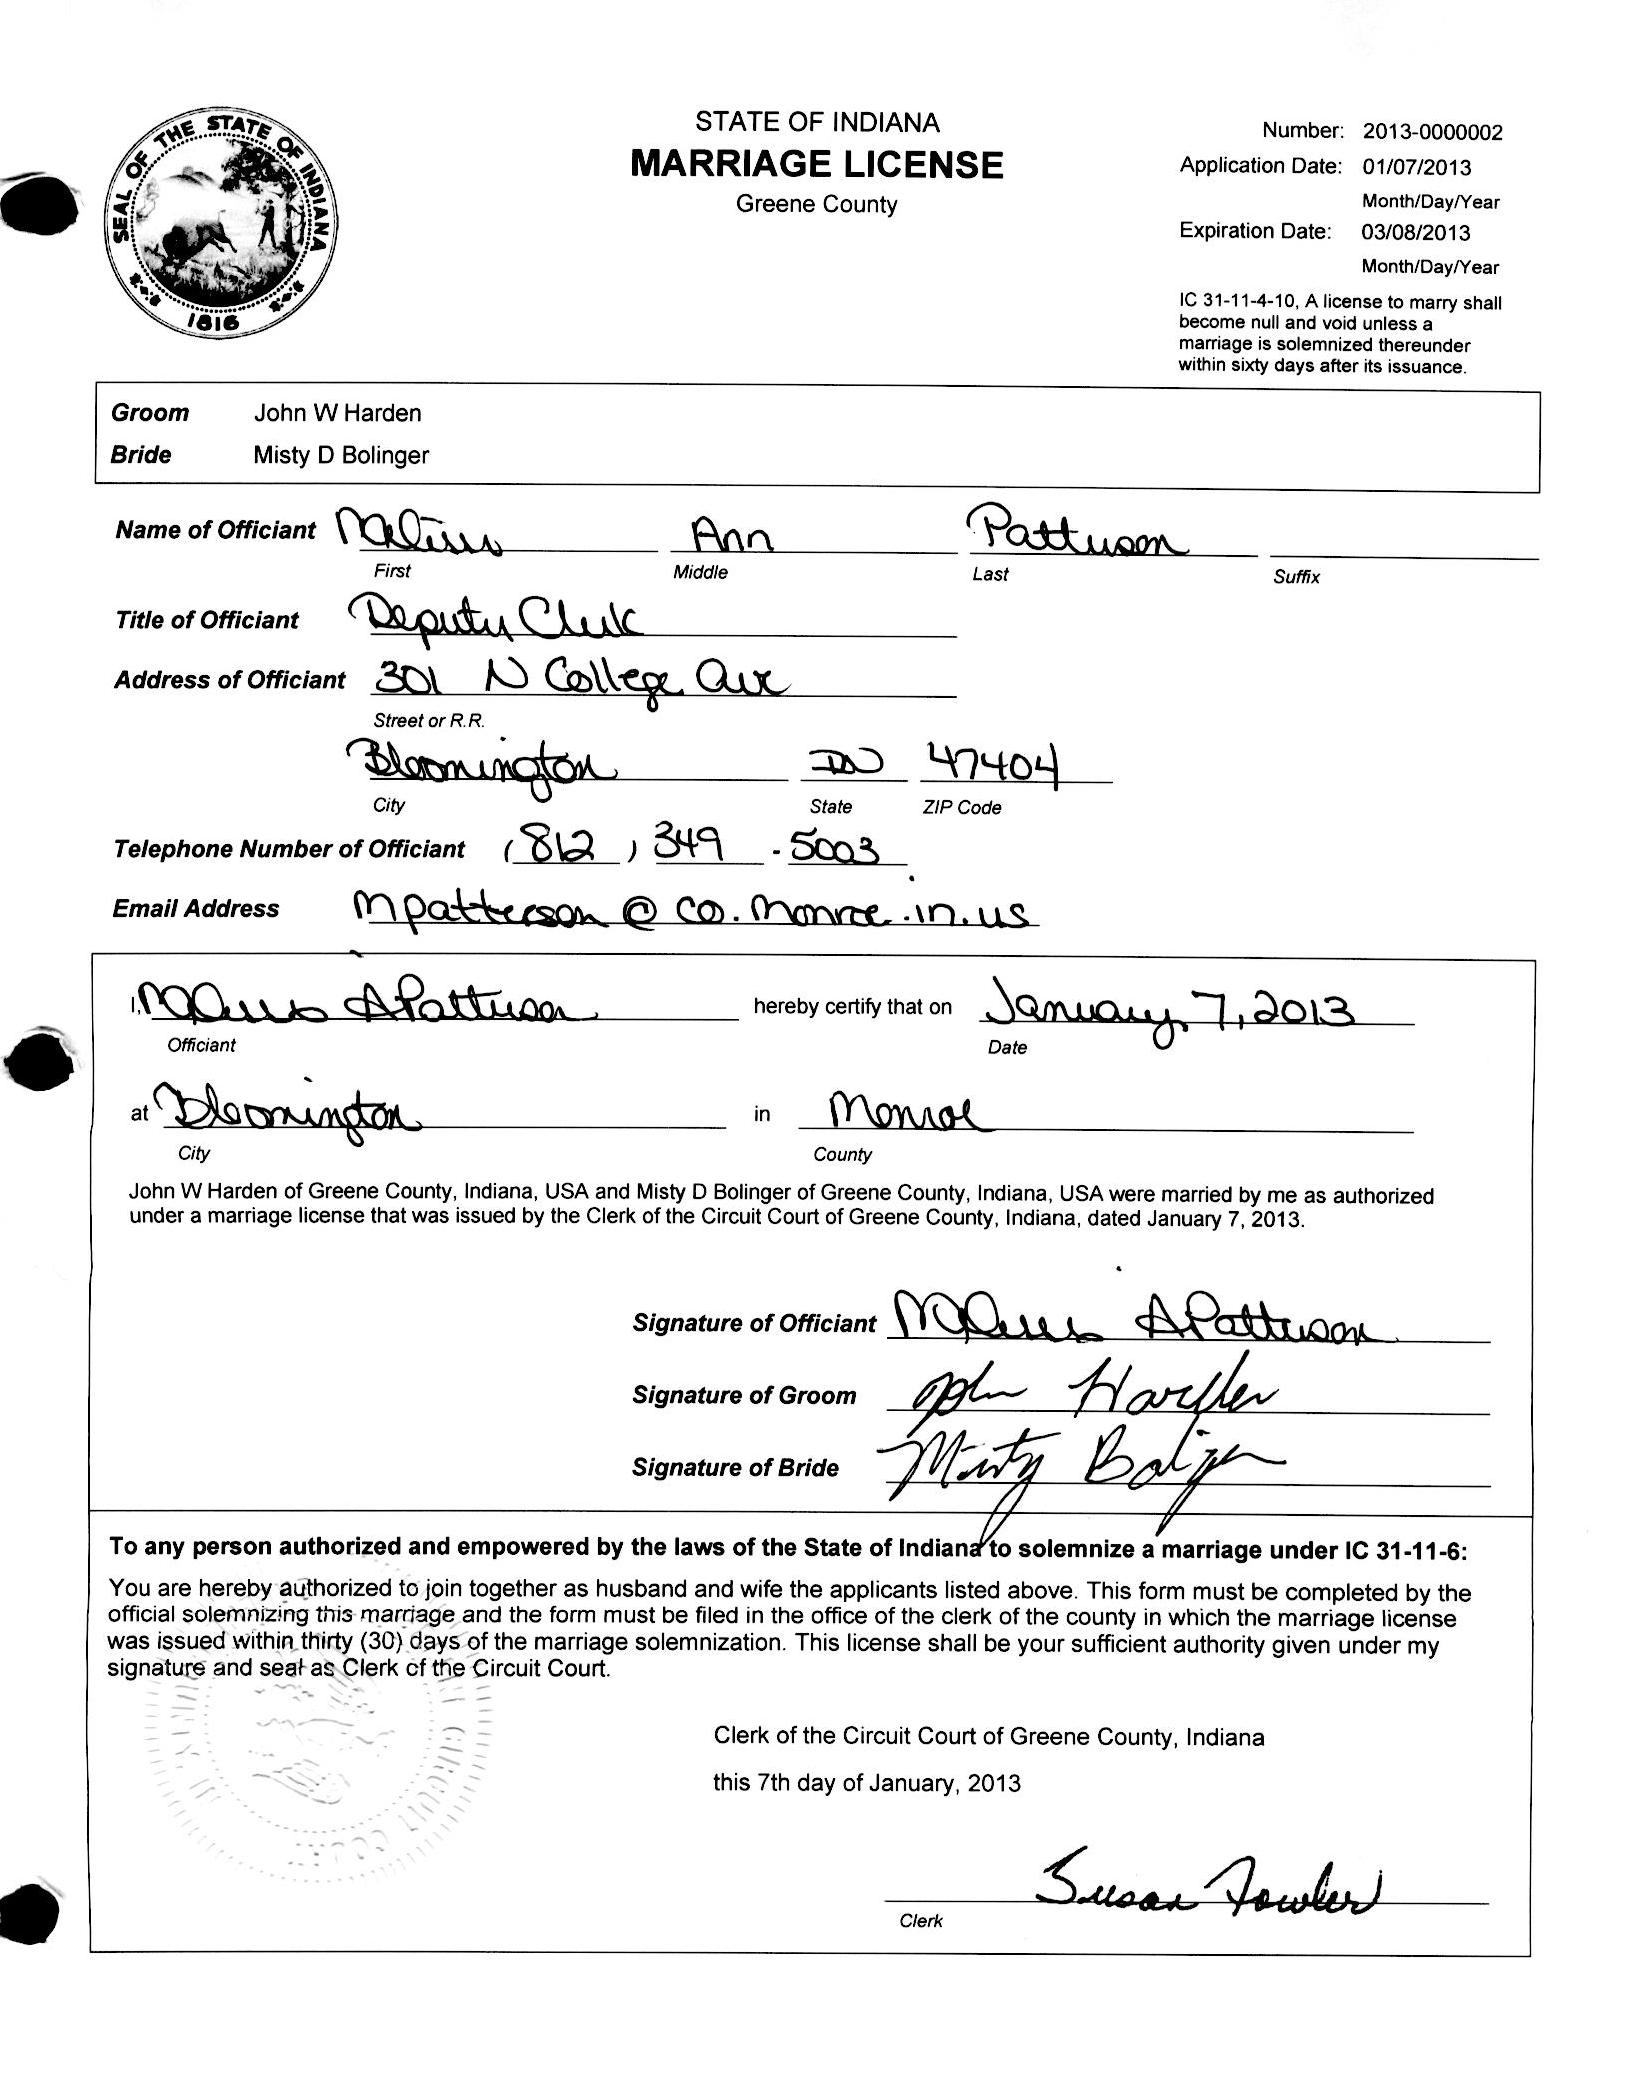 SEAL OF THE STATE OF INDIANA
1816
STATE OF INDIANA
MARRIAGE LICENSE
Greene County
Number: 2013-0000002
Application Date: 01/07/2013
Month/Day/Year
Expiration Date: 03/08/2013
Month/Day/Year
IC 31-11-4-10, A license to marry shall
become null and void unless a
marriage is solemnized thereunder
within sixty days after its issuance.
Groom John W Harden
Bride Misty D Bolinger
Name of Officiant Melissa Ann Patterson
First Middle Last Suffix
Title of Officiant Deputy Clerk
Address of Officiant 301 N College Ave
Street or R.R.
Bloomington IN 47404
City State ZIP Code
Telephone Number of Officiant (812) 349-5003
Email Address mpatterson@co.monroe.in.us
I, Melissa A Patterson hereby certify that on January 7, 2013
Officiant Date
at Bloomington in Monroe
City County
John W Harden of Greene County, Indiana, USA and Misty D Bolinger of Greene County, Indiana, USA were married by me as authorized
under a marriage license that was issued by the Clerk of the Circuit Court of Greene County, Indiana, dated January 7, 2013.
Signature of Officiant Melissa A Patterson
Signature of Groom John Harden
Signature of Bride Misty Bolinger
To any person authorized and empowered by the laws of the State of Indiana to solemnize a marriage under IC 31-11-6:
You are hereby authorized to join together as husband and wife the applicants listed above. This form must be completed by the
official solemnizing this marriage and the form must be filed in the office of the clerk of the county in which the marriage license
was issued within thirty (30) days of the marriage solemnization. This license shall be your sufficient authority given under my
signature and seal as Clerk of the Circuit Court.
Clerk of the Circuit Court of Greene County, Indiana
this 7th day of January, 2013
Susan Fowler
Clerk